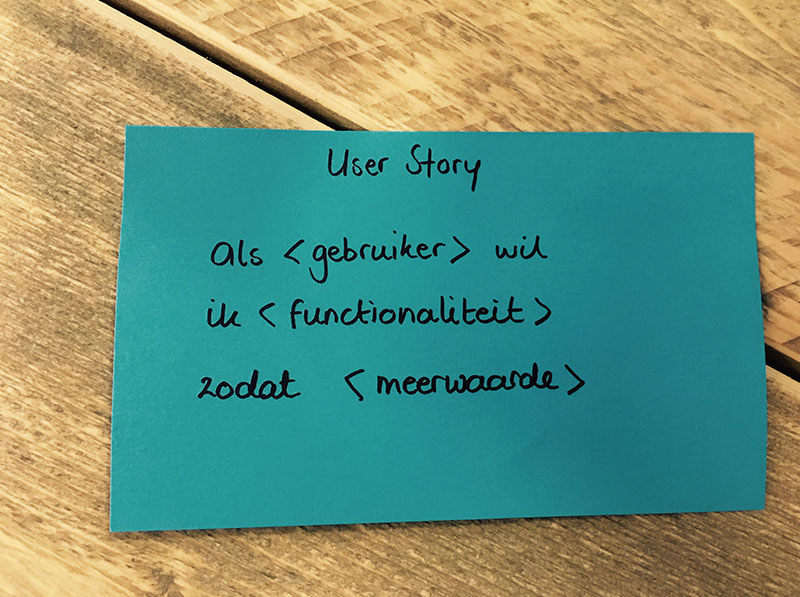 User Story
als <gebruiker> wil
ik <functionaliteit>
zodat <meerwaarde>